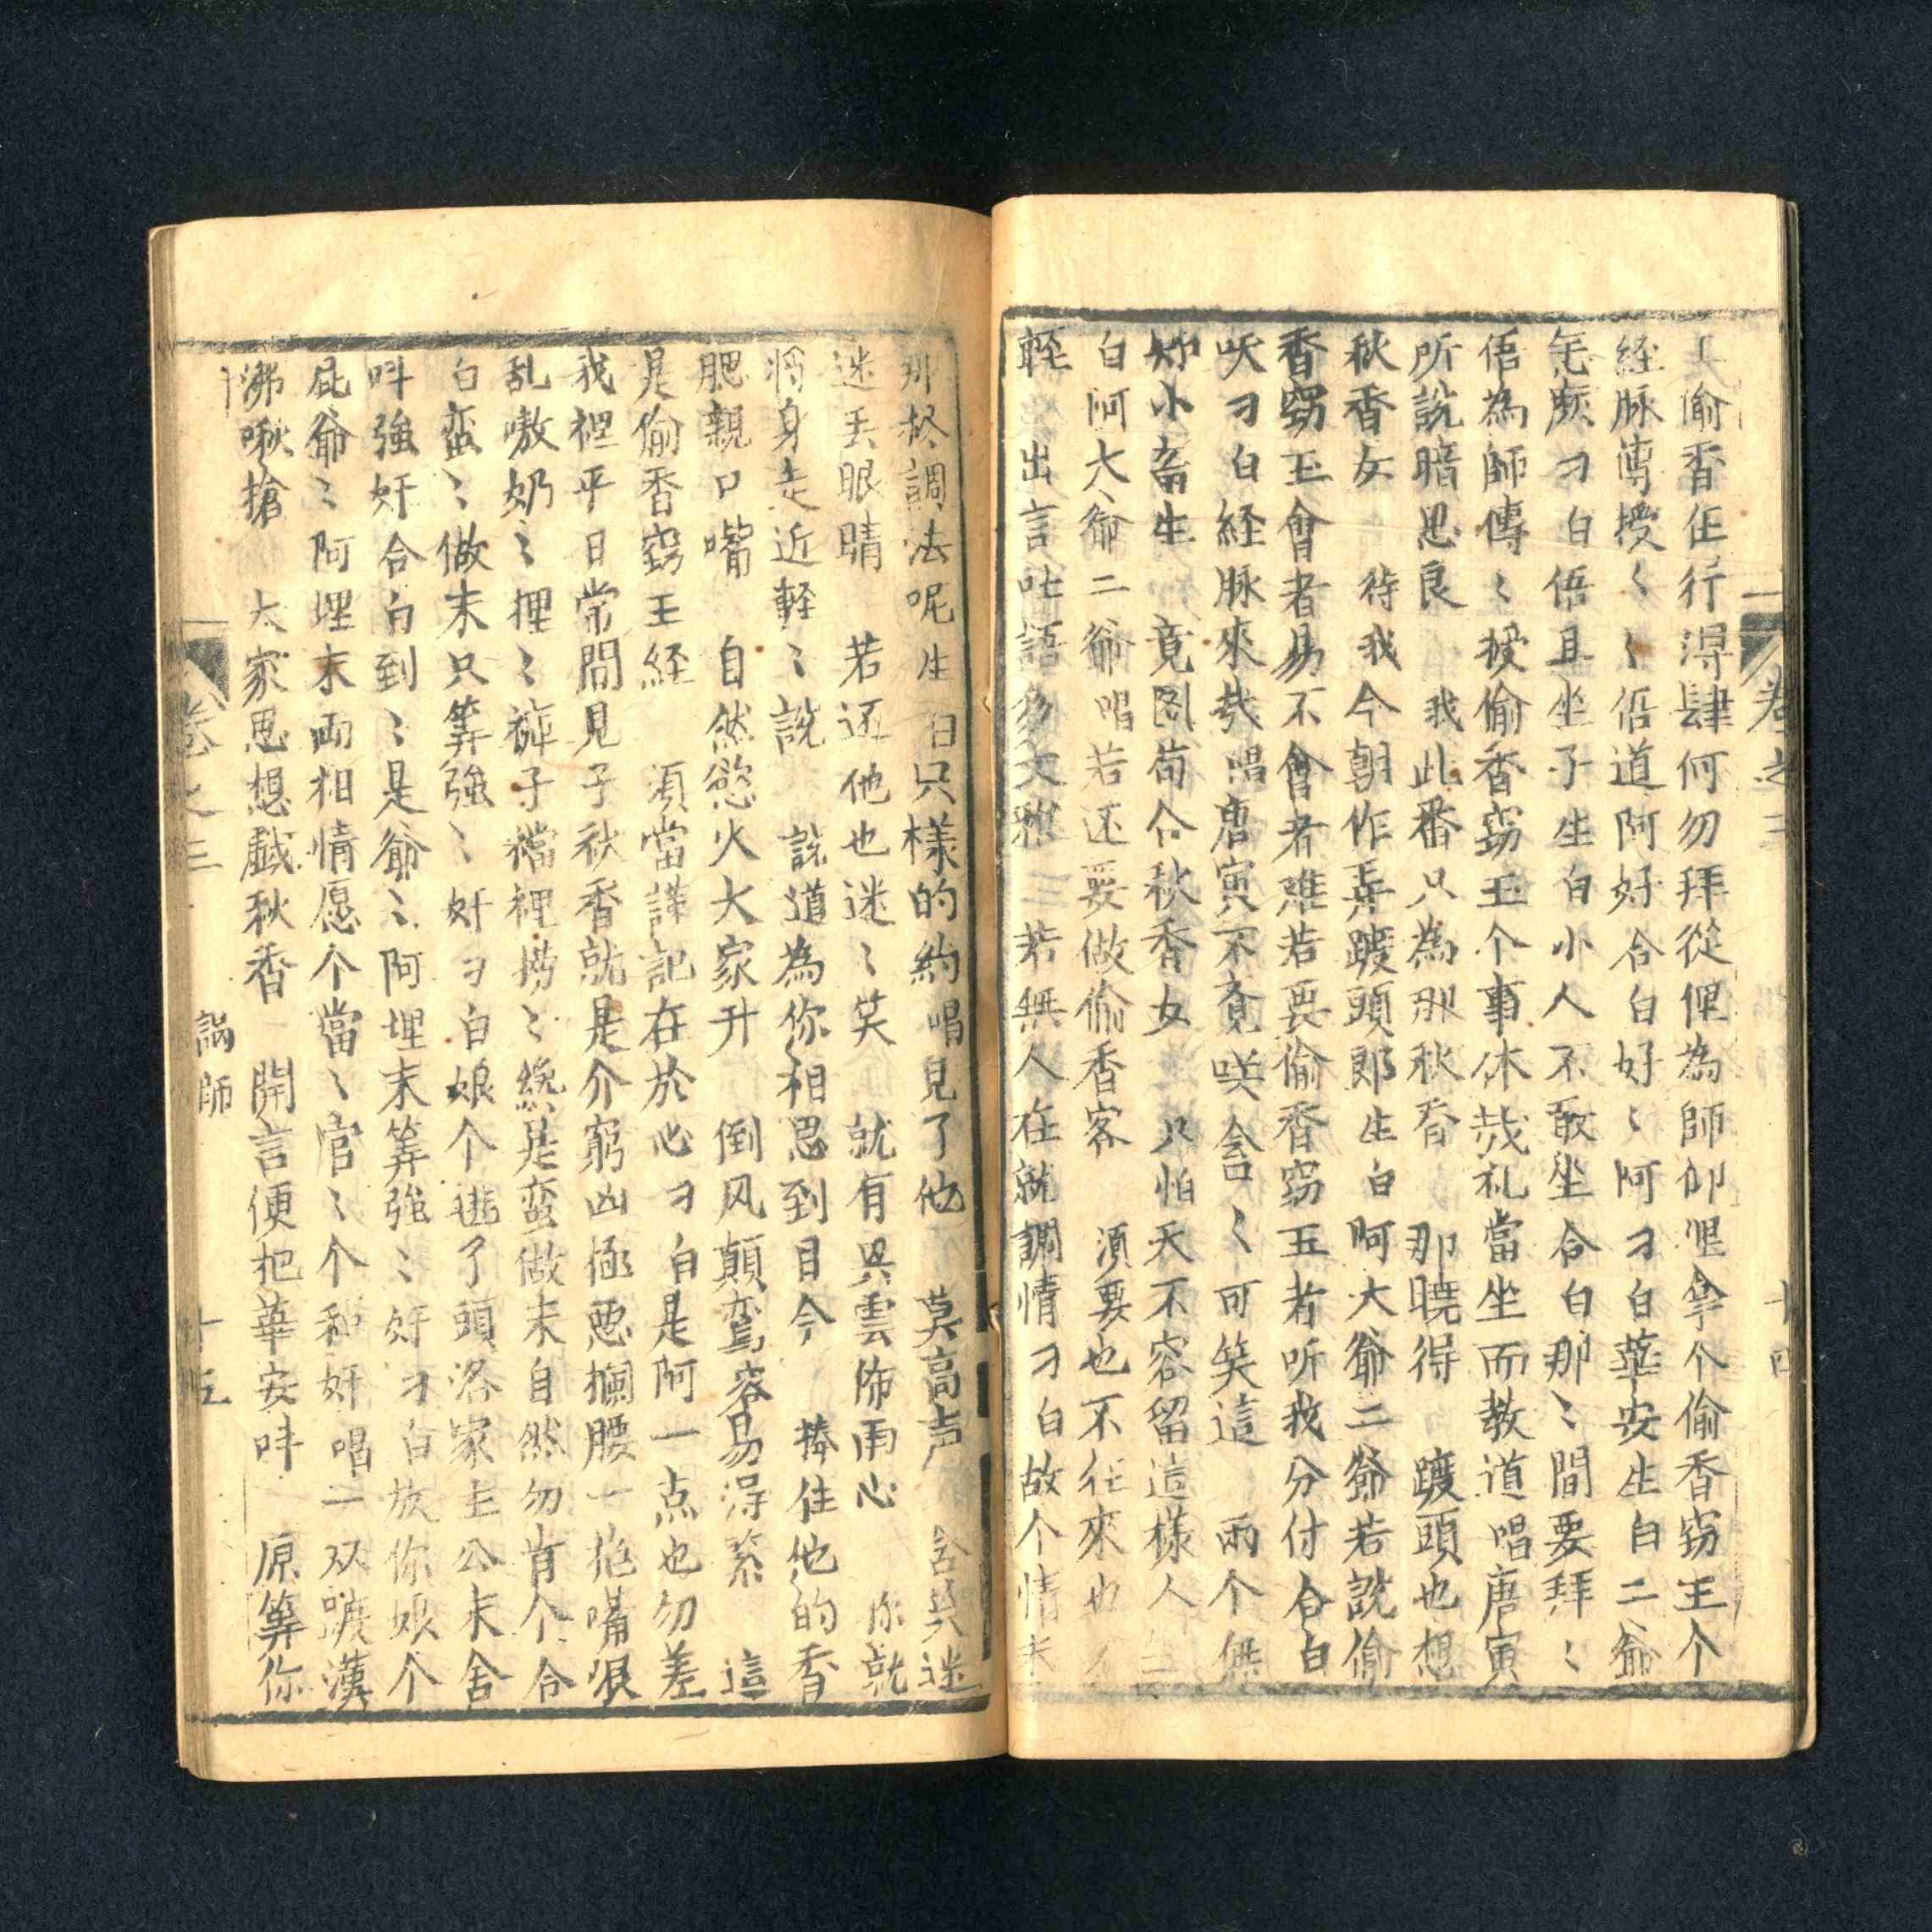 偷香任行得肆何勿拜從俚為師叫俚拿个偷香窃玉个
経脉傳授〻〻俉道阿好合白好〻阿刁白華安生白二爺
怎麽刁白俉且坐子生白小人不敢坐合白那〻間要拜〻
俉為師傅〻授偷香窃玉个事休哉礼當坐而教道唱唐寅
所說暗思良　我此番只為那秋香　那曉得　踱頭也想
秋香女　待我今朝作弄踱頭郎生白阿大爺二爺若說偷
香窃玉會者易不會者难若要偷香窃玉者听我分付合白
刁白経脉來哉唱唐寅不覓咲〻可笑這　兩个無
小畜生　竟图苟合秋香女　只怕天不容留這樣人
白阿大爺二爺唱若还要做偷香客　須要也不往來也
輕　出言吐語多文雅　三若無人在就調情刁白故个情末
卷之三
十四
那柊調法呢生白只樣的約唱見了他　莫高声　含笑迷
迷丢眼睛　若还他也迷〻笑　就有興雲佈雨心　你就
將身走近軽〻說　說道為你相思到目今　捧住他的香
肥親口嘴　自然慾火大家升　倒风顛鸾容易得緊　這
是偷香窃玉経　須當謹記在於心刁白是阿一点也勿差
我裡平日常間見子秋香就是介窮凶極悪攔腰一抱嘴喂
乱嗷奶〻捏〻褲子襠裡撈〻終是蛮做末自然勿肯个合
白蛮〻做末只筭強〻奸刁白娘个逃了頭洛家主公末舍
呌強奸合白到〻是爺〻阿埋末筭強〻奸刁白放你娘个
屁爺〻阿埋末両相情愿个當〻官〻个和奸唱一双踱漢
沸啾搶　大家思想戯秋香　開言便把華安呌　原筭你
卷之三
謅師
十五